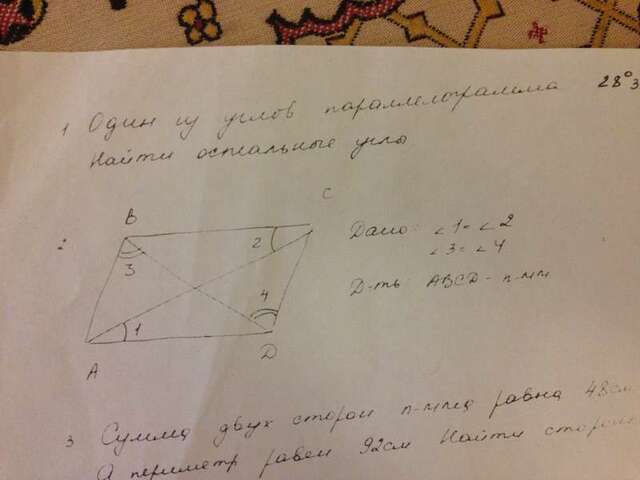 1 Один из углов параллелограмма 28°3
Найти остальные углы
2
B
C
3
2
4
1
A
D
Дано: ∠1=∠2
∠3=∠4
Д-ть: ABCD - п-мм
3 Сумма двух сторон п-мма равна 48см
А периметр равен 92см Найти сторон